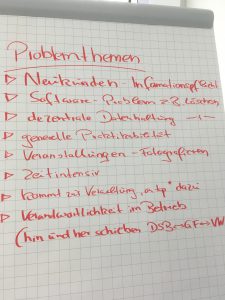 Problemthemen
▷ Neukunden - Informationspflicht
▷ Software - Problem z.B. löschen
▷ dezentrale Datenhaltung -"-
▷ generelle Praktikabilität
▷ Veranstaltungen - Fotografieren
▷ Zeitintensiv
▷ kommt zur Verwaltung, dazu
▷ Verantwortlichkeit im Betrieb
(hin und her schieben DSB↔GF↔VW